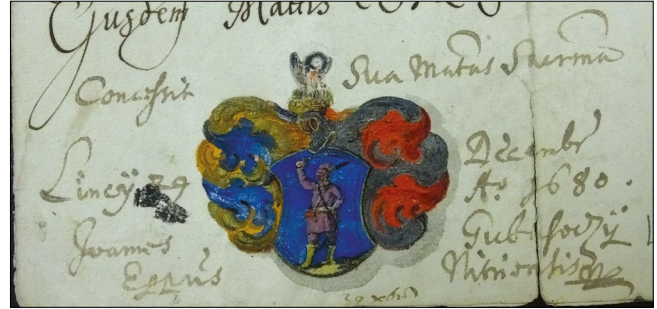 Eiusdem Mattis
Concessit Sua Mattas Sacrma
Lincij 29 Decembr
Ao 1680.
Joannes Gubasoczÿ
Eppus Nitriensis